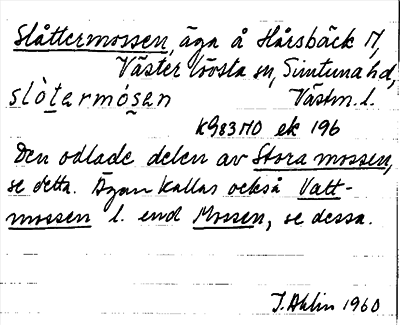 Slåttermossen, äga å Hårsbäck 17,
Väster Lövsta sn, Simtuna hd,
slòtermósen Västm. l.
K983M0 ek 196
Den odlade delen av Stora mossen,
se detta. Ägan kallas också Vatt-
mossen l. end Mossen, se dessa.
J. Ahlin 1960